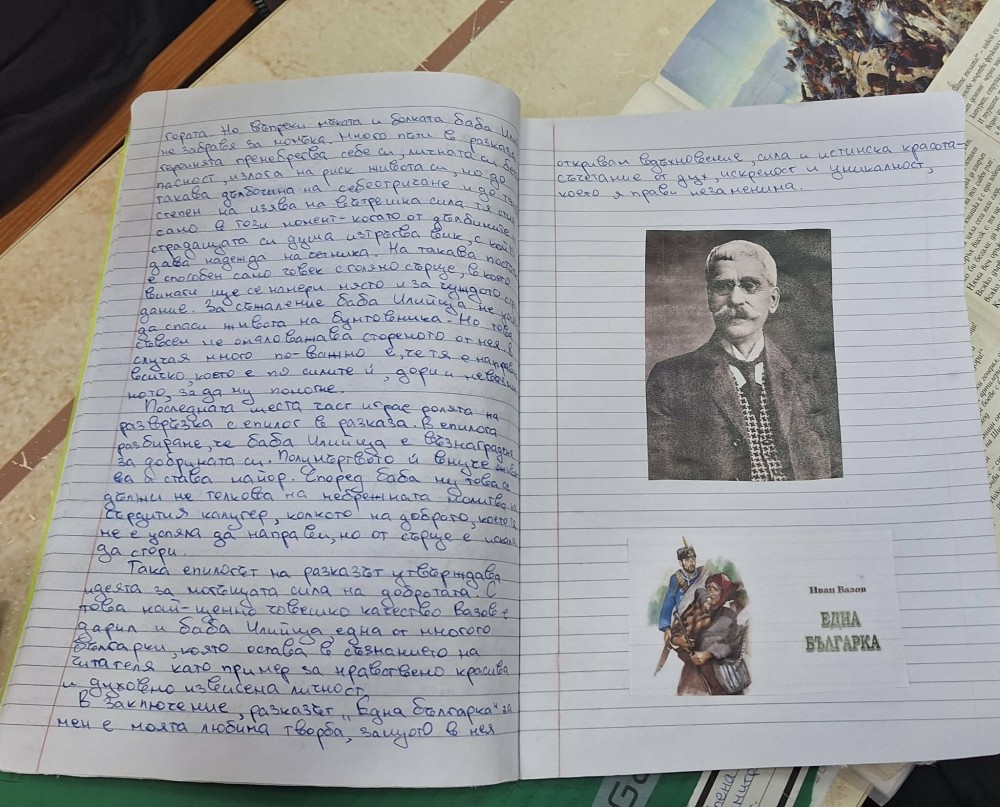 гората. Но въпреки мъката и болката баба Или
не забравя за момъка. Много пъти в разказа
героинята пренебрегва себе си, личната си без
пасност, излага на риск живота си, но до
такава дълбочина на себеотрицание и до та
степен на изява на вътрешна сила тя
само в този момент-когато от дълбините
страдащата си душа изтръгва вик, с кой
дава надежда на четника. На такава пост
е способен само човек с голямо сърце, в което
винаги ще се намери място и за чуждото
дание. За съжаление баба Илийца не
да спаси живота на бунтовника. Но това
съвсем не омаловажава стореното от нея. В
случая много по-важно е, че тя е направи
всичко, което е по силите ѝ, дори и невъзмо
ното, за да му помогне.
Последната шеста част играе ролята на
развръзка с епилог в разказа. В епилога
разбираме, че баба Илийца е възнаградена
за добрината си. Полумъртвото ѝ внуче оживя
ва и става майор. Според баба му това се
дължи не толкова на небрежната молитва на
сърдития калугер, колкото на доброто, което тя
не е успяла да направи, но от сърце е искала
да стори.
Така епилогът на разказът утвърждава
идеята за могъщата сила на добротата. С
това най-ценно човешко качество Вазов е
дарил и баба Илийца, една от многото
българки, която остава в съзнанието на
читателя като пример за нравствено красива
и духовно извисена личност.
В заключение, разказът "Една българка" за
мен е моята любима творба, защото в нея
откривам вдъхновение, сила и истинска красота-
съчетание от дух, искреност и уникалност,
което я прави незаменима.
Иван Вазов
ЕДНА
БЪЛГАРКА